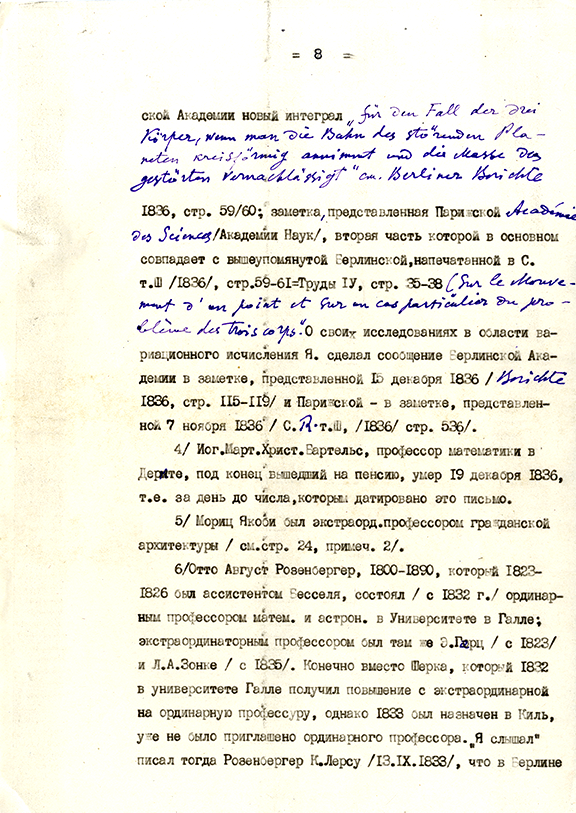 = 8 =
ской Академии новый интеграл „für den Fall der drei
Körper, wenn man die Bahn des störenden Pla-
neten kreisförmig annimmt und die Masse des
gestörten vernachlässigt" см. Berliner Berichte
1836, стр. 59/60; заметка, представленная Парижской Académie
des Sciences/Академии Наук/, вторая часть которой в основном
совпадает с вышеупомянутой Берлинской, напечатанной в С.
т.Ш /1836/, стр.59-61=Труды IУ, стр. 35-38 (Sur le Mouve-
ment d'un point et sur un cas particulier du pro-
blème des trois corps". О своих исследованиях в области ва-
риационного исчисления Я. сделал сообщение Берлинской Ака-
демии в заметке, представленной 15 декабря 1836 / Berichte
1836, стр. 115-119/ и Парижской - в заметке, представлен-
ной 7 ноября 1836 / C.R. т.Ш, /1836/ стр. 536/.
4/ Иог.Март.Христ.Бартельс, профессор математики в
Дерпте, под конец вышедший на пенсию, умер 19 декабря 1836,
т.е. за день до числа, которым датировано это письмо.
5/ Мориц Якоби был экстраорд.профессором гражданской
архитектуры / см.стр. 24, примеч. 2/.
6/Отто Август Розенбергер, 1800-1890, который 1823-
1826 был ассистентом Бесселя, состоял / с 1832 г./ ординар-
ным профессором матем. и астрон. в Университете в Галле;
экстраординаторным профессором был там же Э.Гарц / с 1823/
и Л.А.Зонке / с 1835/. Конечно вместо Шерка, который 1832
в университете Галле получил повышение с экстраординарной
на ординарную профессуру, однако 1833 был назначен в Киль,
уже не было приглашено ординарного профессора. „Я слышал"
писал тогда Розенбергер К.Лерсу /13.IX.1833/, что в Берлине